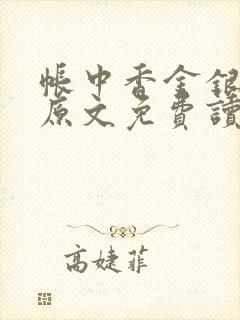 帳中香金銀
原文免費讀
高婕菲